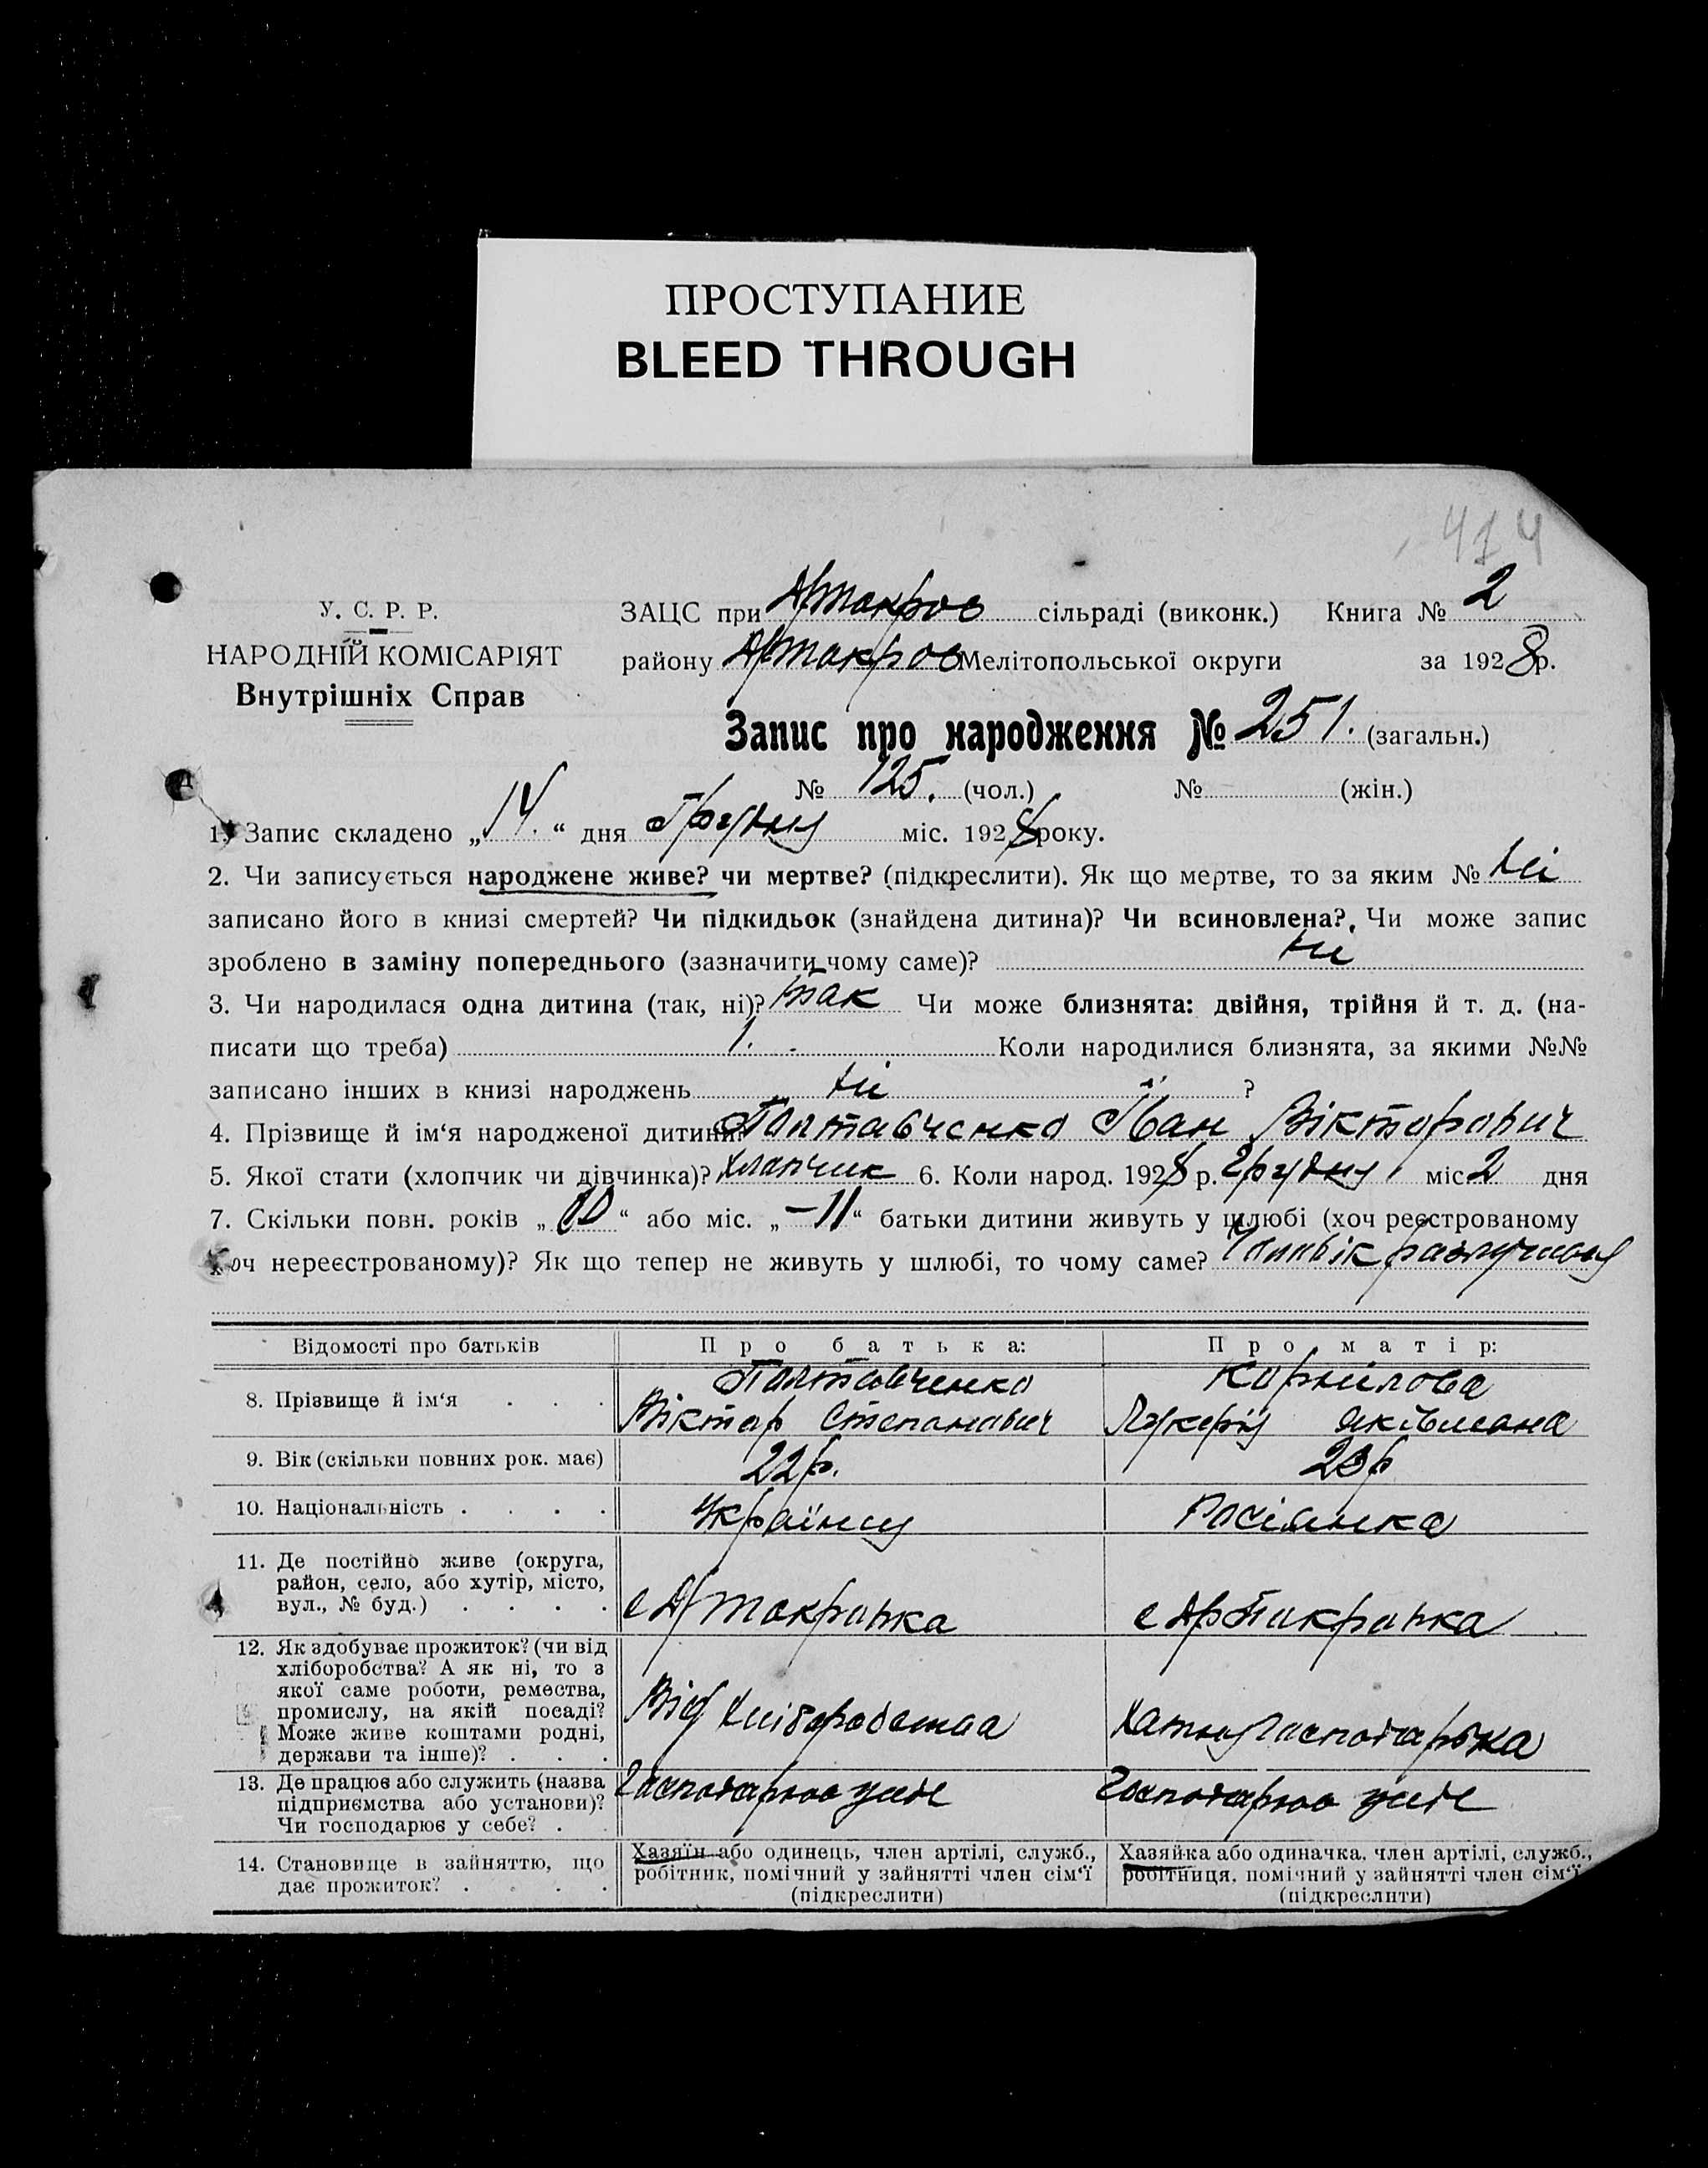 ПРОСТУПАНИЕ
BLEED THROUGH
414
У. С. Р. Р.
НАРОДНІЙ КОМІСАРІЯТ
Внутрішніх Справ
ЗАЦС при сільраді (виконк.) Книга № 2
району Мелітопольської округи за 1928 р.
Запис про народження № 251. (загальн.)
№ 125. (чол.) № (жін.)
1. Запис складено „14.“ дня Грудня міс. 1928 року.
2. Чи записується народжене живе? чи мертве? (підкреслити). Як що мертве, то за яким № Ні
записано його в книзі смертей? Чи підкидьок (знайдена дитина)? Чи всиновлена? Чи може запис
зроблено в заміну попереднього (зазначити чому саме)? Ні
3. Чи народилася одна дитина (так, ні)? так Чи може близнята: двійня, трійня й т. д. (на-
писати що треба) 1. Коли народилися близнята, за якими №№
записано інших в книзі народжень Ні ?
4. Прізвище й ім‘я народженої дитини Полтавченко Іван Вікторович
5. Якої стати (хлопчик чи дівчинка)? хлапчик 6. Коли народ. 1928 р. грудня міс. 2 дня
7. Скільки повн. років „ “ або міс. „–11“ батьки дитини живуть у шлюбі (хоч реєстрованому
хоч нереєстрованому)? Як що тепер не живуть у шлюбі, то чому саме?
Відомості про батьків
Про батька:
Про матір:
8. Прізвище й ім‘я . . .
Полтавченко
Віктар Степанович
Корнілова
Яківлевна
9. Вік (скільки повних рок. має)
22 р.
23 р
10. Національність . . . .
Українец
Росіянка
11. Де постійно живе (округа,
район, село, або хутір, місто,
вул., № буд.) . . . .
12. Як здобуває прожиток? (чи від
хліборобства? А як ні, то з
якої саме роботи, ремества,
промислу, на якій посаді?
Може живе коштами родні,
держави та інше)? . . .
Від хліборобства
Хатня господарька
13. Де працює або служить (назва
підприємства або установи)?
Чи господарює у себе? . .
Господарює у себе
Господарює у себе
14. Становище в зайняттю, що
дає прожиток? . . . .
Хазяїн або одинець, член артілі, служб.,
робітник, помічний у зайнятті член сім‘ї
(підкреслити)
Хазяйка або одиначка, член артілі, служб.,
робітниця, помічний у зайнятті член сім‘ї
(підкреслити)